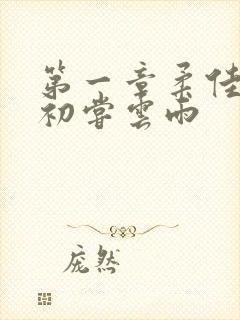 第一章柔佳
初尝雲雨
庞然